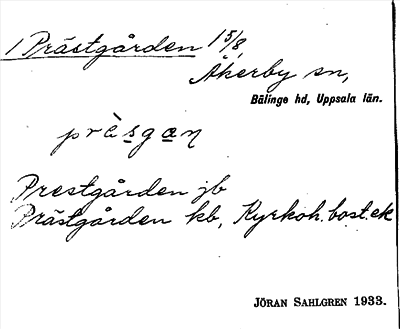 1 Prästgården 15/8
Åkerby sn,
Bälinge hd, Uppsala län.
prèsgan
Prestgården jb
Prästgården kb, Kyrkoh.bost.ek
JÖRAN SAHLGREN 1933.